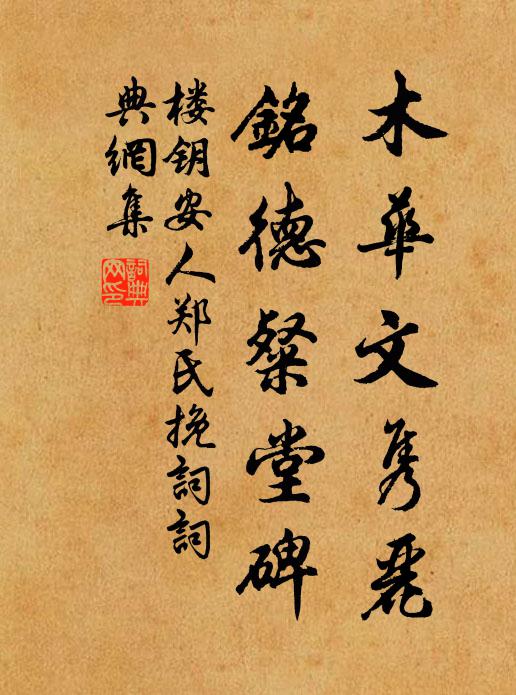 木華文隽麗
銘德粲堂碑
楼钥安人郑氏挽詞詞
典網集
詞典
网印